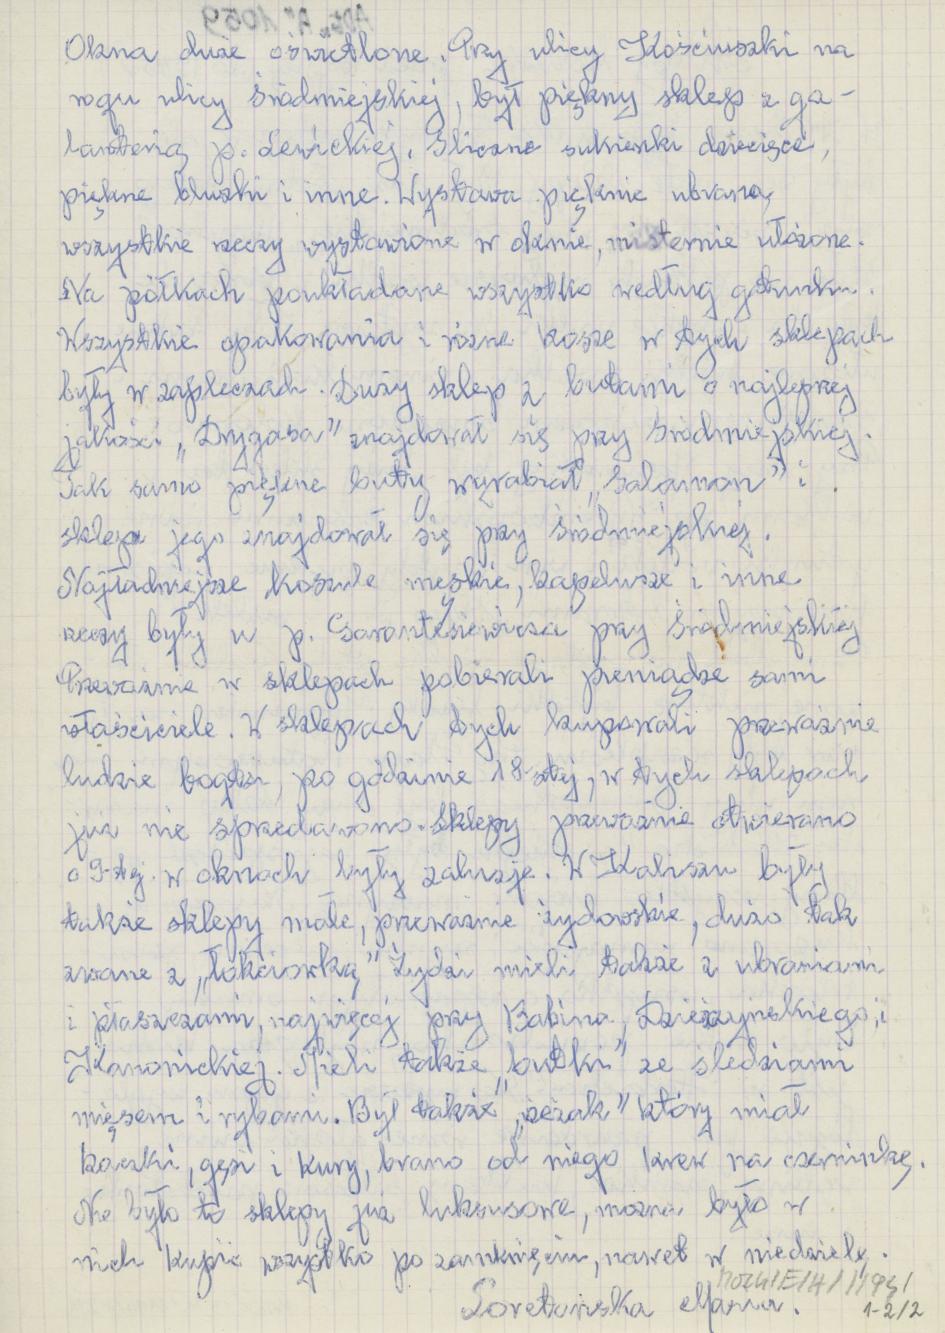 Okna duże oświetlone. Przy ulicy Kościuszki na
rogu ulicy Śródmiejskiej, był piękny sklep z ga-
lanterią p. Lewickiej. Śliczne sukienki dziecięce,
piękne bluzki i inne. Wystawa pięknie ubrana,
wszystkie rzeczy wystawione w oknie, misternie ułożone.
Na półkach poukładane wszystko według gatunku.
Wszystkie opakowania i różne kosze w tych sklepach
były w zapleczach. Duży sklep z butami o najlepszej
jakości „Drygasa" znajdował się przy Śródmiejskiej.
Tak samo piękne buty wyrabiał „Salamon" i
sklep jego znajdował się przy Śródmiejskiej.
Najładniejsze koszule męskie, kapelusze i inne
rzeczy były u p. przy Śródmiejskiej
Przeważnie w sklepach pobierali pieniądze sami
właściciele. W sklepach tych kupowali przeważnie
ludzie bogaci, po godzinie 18-stej, w tych sklepach
już nie sprzedawano. Sklepy przeważnie otwierano
o 9-tej. w oknach były żaluzje. W Kaliszu były
także sklepy małe, przeważnie żydowskie, dużo tak
zwane z „łokciowką" Żydzi mieli także z ubraniami
i płaszczami, najwięcej przy Babina, Dzieżzynskiego, i
Kanonickiej. Mieli także „budki" ze śledziami
mięsem i rybami. Był także „rzeżak" który miał
kaczki, gęsi i kury, brano od niego krew na czerninkę.
Nie były to sklepy już luksusowe, można było w
nich kupić wszystko po zamknięciu, nawet w niedzielę.
Maria.
1-2/2